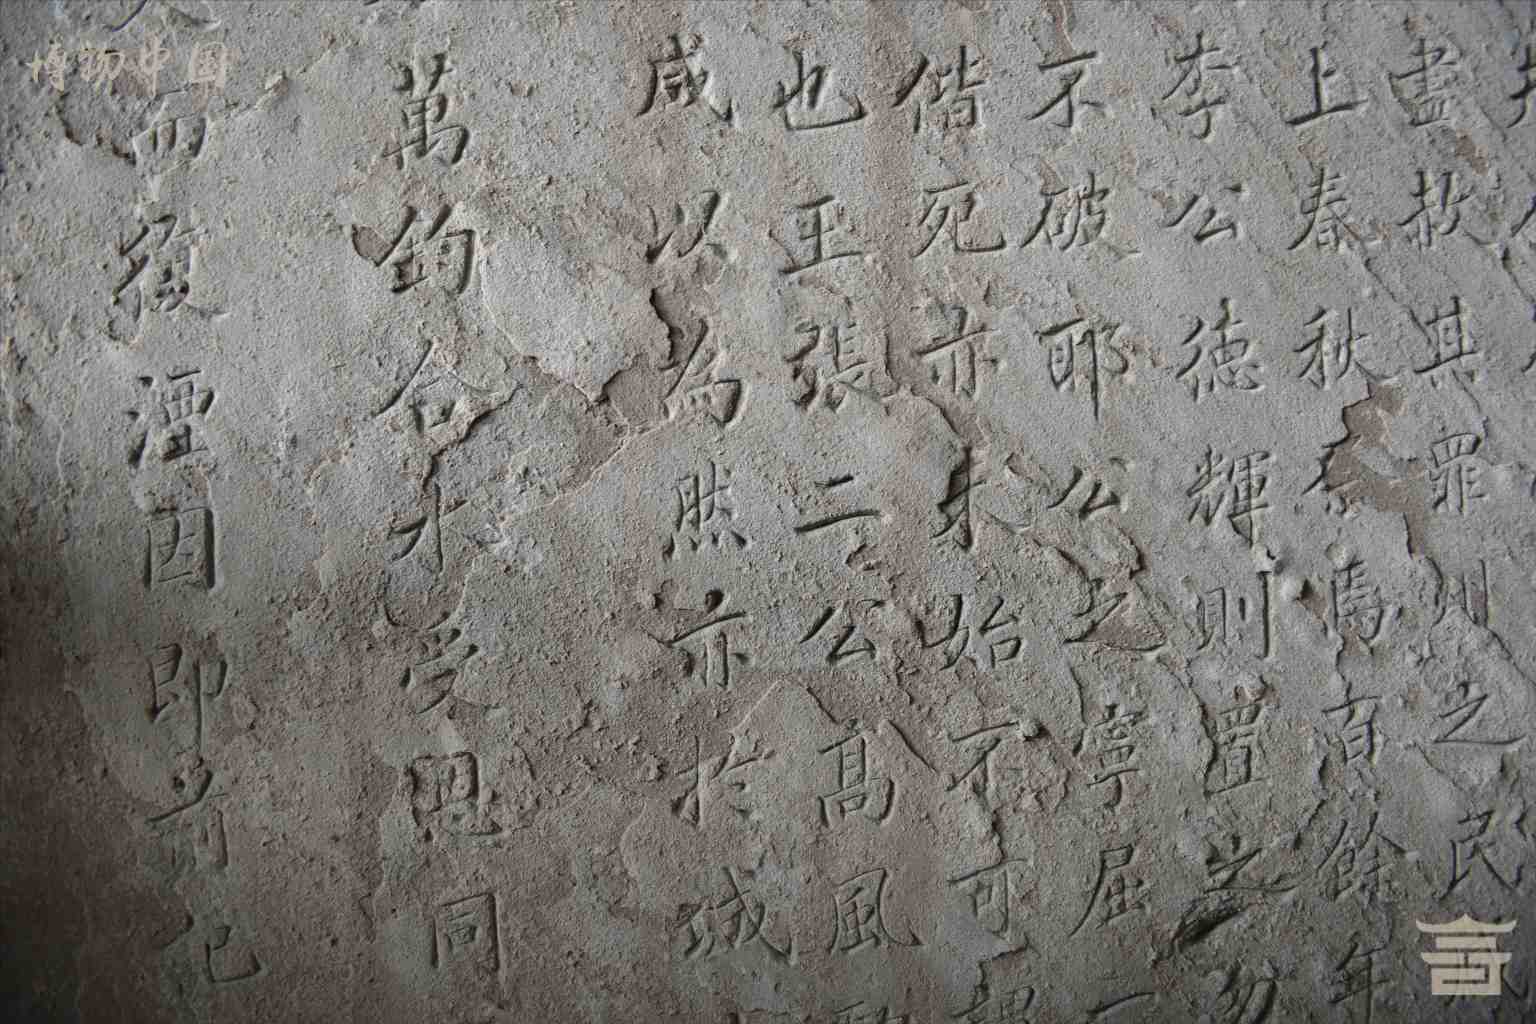 盡赦其罪則之民
上春秋焉百餘年
李公德輝則置之勿
不破耶公之寧屈一
偕死亦未始不可謂
也王張二公高風
咸以為然亦於城
萬鈞合十受恩同
而復湮因即前已
博物中国